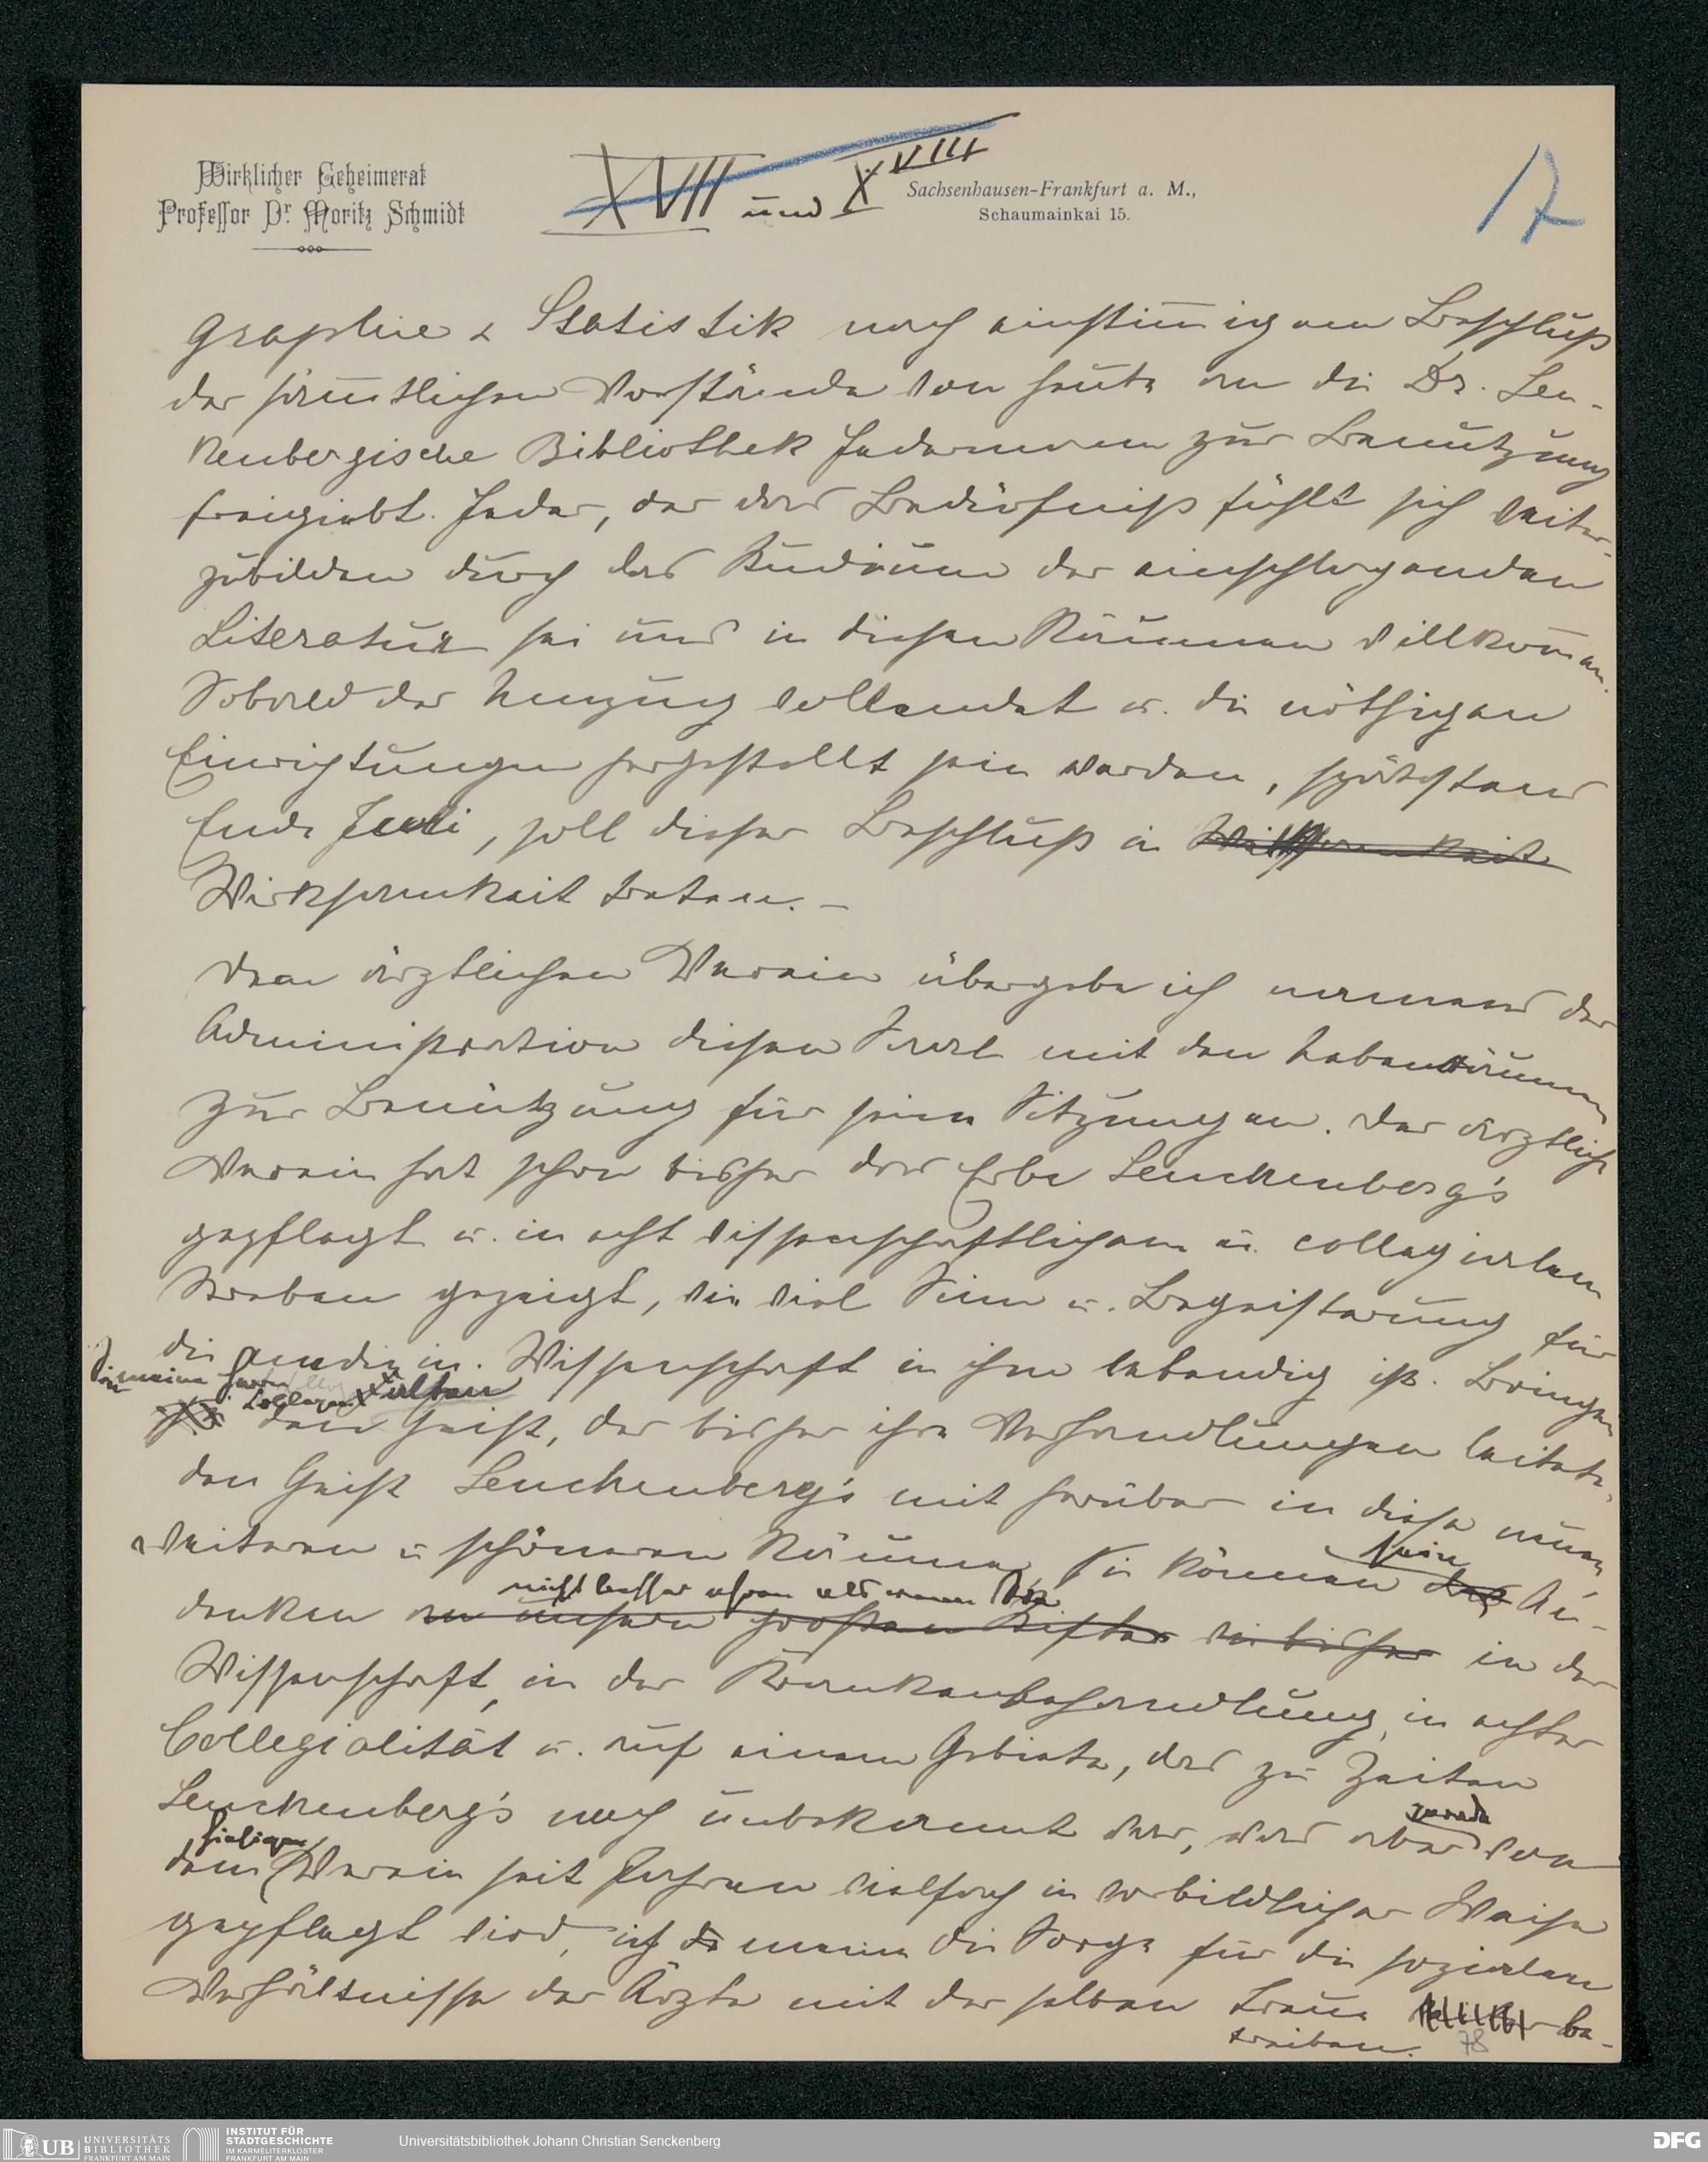 Wirklicher Geheimerat
Professor Dr Moritz Schmidt
XVII und XVIII
Sachsenhausen-Frankfurt a. M.,
Schaumainkai 15.
17
graphie & Statistik nach einstimigem Beschluß
der sämtlichen Vorstände von heute an die Dr. Sen-
kenbergische Bibliothek Jedermann zur Benutzung
freigiebt. Jeder, der das Bedürfniß fühlt sich weiter-
zubilden durch das Studium der einschlagenden
Literatur sei uns in diesen Räumen willkomen.
Sobald der Umzug vollendet u. die nöthigen
Einrichtungen hergestellt sein werden, spätestens
Ende Juli, soll dieser Beschluß in
Wirksamkeit treten. —
Dem ärztlichen Verein übergebe ich namens der
Administration diesen Saal mit den Nebenräumen
zur Benützung für seine Sitzungen. Der ärztliche
Verein hat schon bisher das Erbe Senckenberg's
gepflegt u. in acht wissenschaftlichem u. collegialem
Streben gezeigt, wie viel Sinn u. Begeisterung für
die medizin. Wissenschaft in ihm lebendig ist. Bringen
Sie meine Herren Collegen den alten
Geist, der bisher ihre Verhandlungen leitete,
den Geist Senckenberg's mit herüber in diese neuen,
weiteren u schöneren Räume, Sie können sein An-
nicht besser ehren als wenn Sie
denken an unsern großen Stifter wie bisher in der
Wissenschaft, in der Krankenbehandlung, in achter
Collegialität u. auf einem Gebiete, das zu Zeiten
Senckenberg's noch unbekannt war, was aber gerade von
dem hiesigen Verein seit Jahren vielfach in vorbildlicher Weise
gepflegt wird, ich meine die Sorge für die sozialen
Verhältnisse der Ärzte mit derselben Treue be-
treiben.
78
UB UNIVERSITÄTS
BIBLIOTHEK
FRANKFURT AM MAIN
INSTITUT FÜR
STADTGESCHICHTE
IM KARMELITERKLOSTER
FRANKFURT AM MAIN
Universitätsbibliothek Johann Christian Senckenberg
DFG